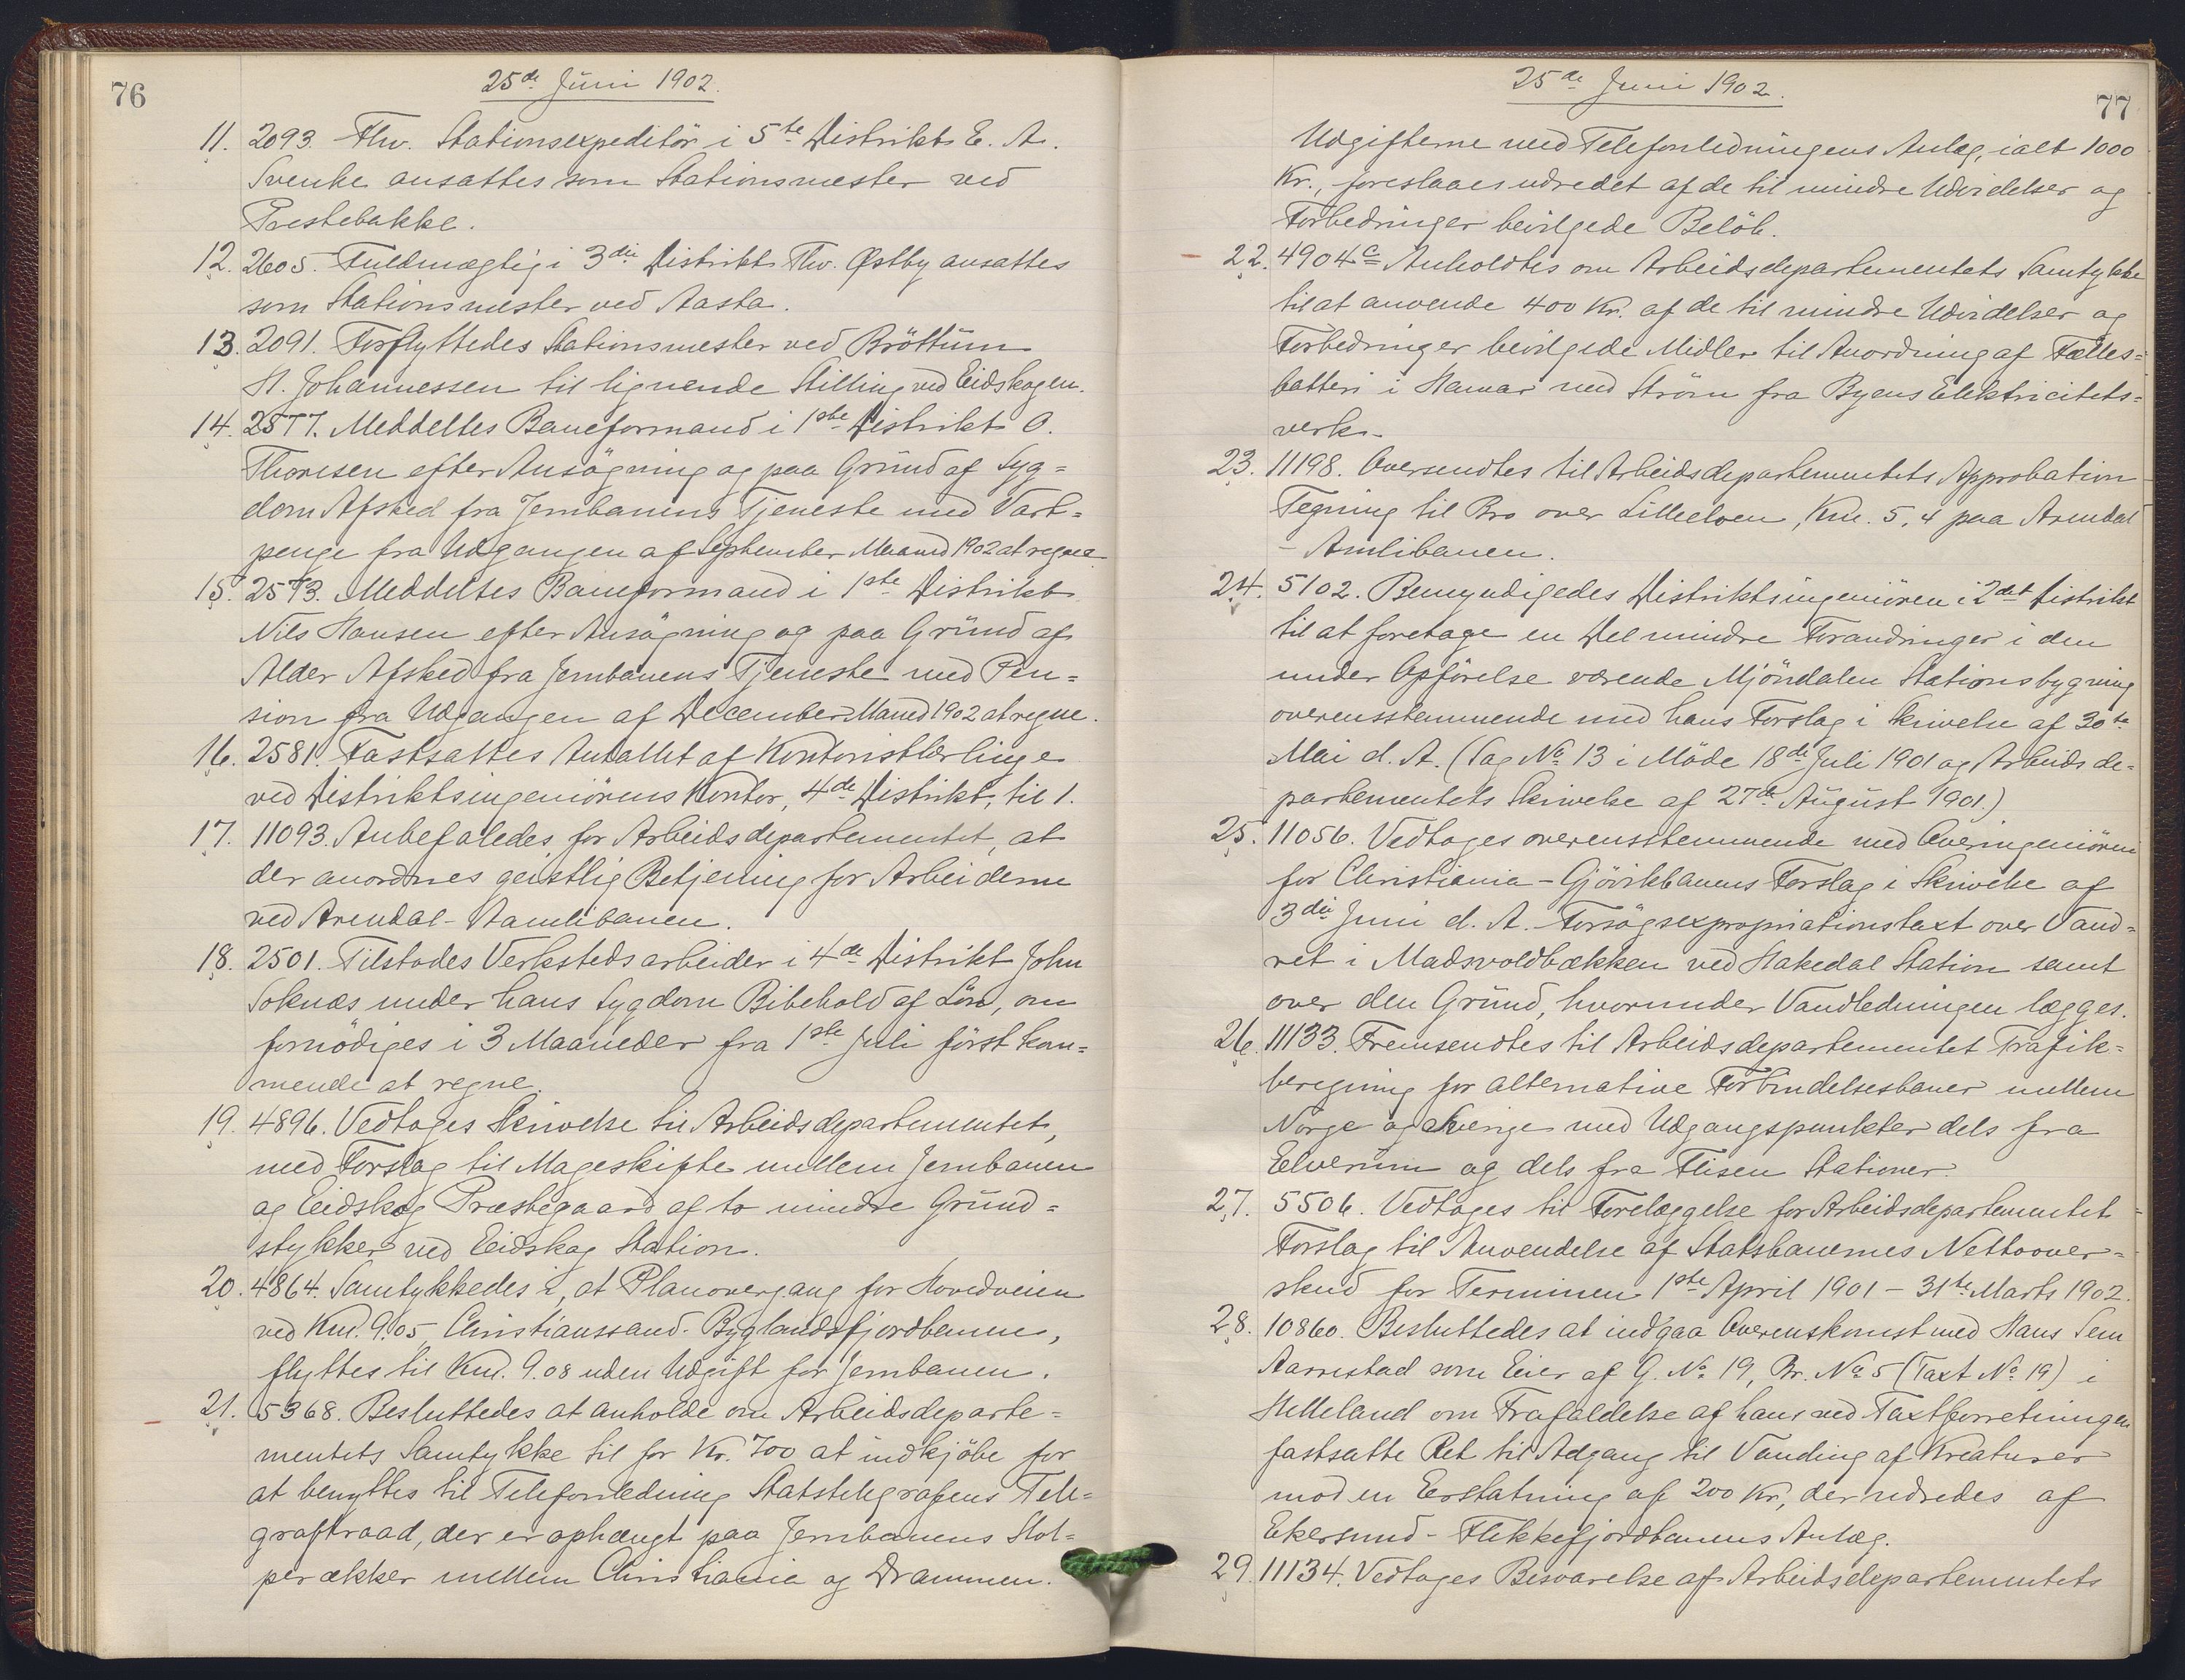 76
25de Juni 1902.
11. 2093. Fhv. Stationsexpeditör i 5te Distrikt E. A.
Svenke ansattes som Stationsmester ved
Prestebakke.
12. 2605. Fuldmægtig i 3die Distrikt Thv. Østby ansattes
som Stationsmester ved Aasta.
13. 2091. Forflyttedes Stationsmester ved Bröttum
H. Johannessen til lignende Stilling ved Eidskogen.
14. 2577. Meddeltes Baneformand i 1ste Distrikt O.
Thoresen efter Ansögning og paa Grund af Syg=
dom Afsked fra Jernbanens Tjeneste med Vart=
penge fra Udgangen af September Maaned 1902 at regne.
15. 2573. Meddeltes Baneformand i 1ste Distrikt
Nils Hansen efter Ansögning og paa Grund af
Alder Afsked fra Jernbanens Tjeneste med Pen=
sion fra Udgangen af December Maaned 1902 at regne.
16. 2581. Fastsattes Antallet af Kontoristlærlinge
ved Distriktsingeniörens Kontor, 4de Distrikt, til 1.
17. 11093. Anbefaledes for Arbeidsdepartementet, at
der anordnes geistlig Betjening for Arbeiderne
ved Arendal-Aamlibanen.
18. 2501. Tilstodes Verkstedsarbeider i 4de Distrikt John
Soknæs under hans Sygdom Bibehold af Lön, om
fornödiges i 3 Maaneder fra 1ste Juli först kom=
mende at regne.
19. 4896. Vedtoges Skrivelse til Arbeidsdepartementet,
med Forslag til Mageskifte mellem Jernbanen
og Eidskog Præstegaard af to mindre Grund=
stykker ved Eidskog Station.
20. 4864. Samtykkedes i, at Planovergang for Hovedveien
ved Km. 9.05 Christianssand-Byglandsfjordbanen,
flyttes til Km. 9.08 uden Udgift for Jernbanen.
21. 5368. Besluttedes at anholde om Arbeidsdeparte=
mentets Samtykke til for Kr. 700 at indkjöbe for
at benyttes til Telefonledning Statstelegrafens Tele=
graftraad, der er ophængt paa Jernbanens Stol=
perækker mellem Christiania og Drammen.
25de Juni 1902.
77
Udgifterne med Telefonledningens Anlæg, ialt 1000
Kr., foreslaaes udredet af de til mindre Udvidelser og
Forbedringer bevilgede Belöb.
22. 4904c Anholdtes om Arbeidsdepartementets Samtykke
til at anvende 400 Kr. af de til mindre Udvidelser og
Forbedringer bevilgede Midler til Anordning af Fælles=
batteri i Hamar med Ström fra Byens Elektricitets=
verk.
23. 11198. Oversendtes til Arbeidsdepartementets Approbation
Tegning til Bro over Lilleelven, Km. 5,4 paa Arendal
- Amlibanen.
24. 5102. Bemyndigedes Distriktsingeniören i 2det Distrikt
til at foretage en Del mindre Forandringer i den
under Opförelse værende Mjöndalen Stationsbygning
overensstemmende med hans Forslag i Skrivelse af 30te
Mai d. A. (Sag No 13 i Möde 18de Juli 1901 og Arbeidsde=
partementets Skrivelse af 27de August 1901.)
25. 11056. Vedtoges overensstemmende med Overingeniören
for Christiania-Gjövikbanens Forslag i Skrivelse af
3die Juni d. A. Forsögsexpropriationstaxt over Vand=
ret i Madsvoldbækken ved Hakedal Station samt
over den Grund, hvorunder Vandledningen lægges.
26. 11133. Fremsendtes til Arbeidsdepartementet Trafik=
beregning for alternative Forbindelsesbaner mellem
Norge og Sverige med Udgangspunkter dels fra
Elverum og dels fra Flisen Stationer.
27. 5506. Vedtoges til Forelæggelse for Arbeidsdepartementet
Forslag til Anvendelse af Statsbanernes Nettoover=
skud for Terminen 1ste April 1901 - 31te Marts 1902.
28. 10860. Besluttedes at indgaa Overenskomst med Hans Sem
Aarrestad som Eier af G. No 19, Br. No 5 (Taxt No 19) i
Helleland om Frafaldelse af hans ved Taxtforretningen
fastsatte Ret til Adgang til Vanding af Kreaturer
mod en Erstatning af 200 Kr., der udredes af
Ekersund-Flekkefjordbanens Anlæg.
29. 11134. Vedtoges Besvarelse af Arbeidsdepartementets